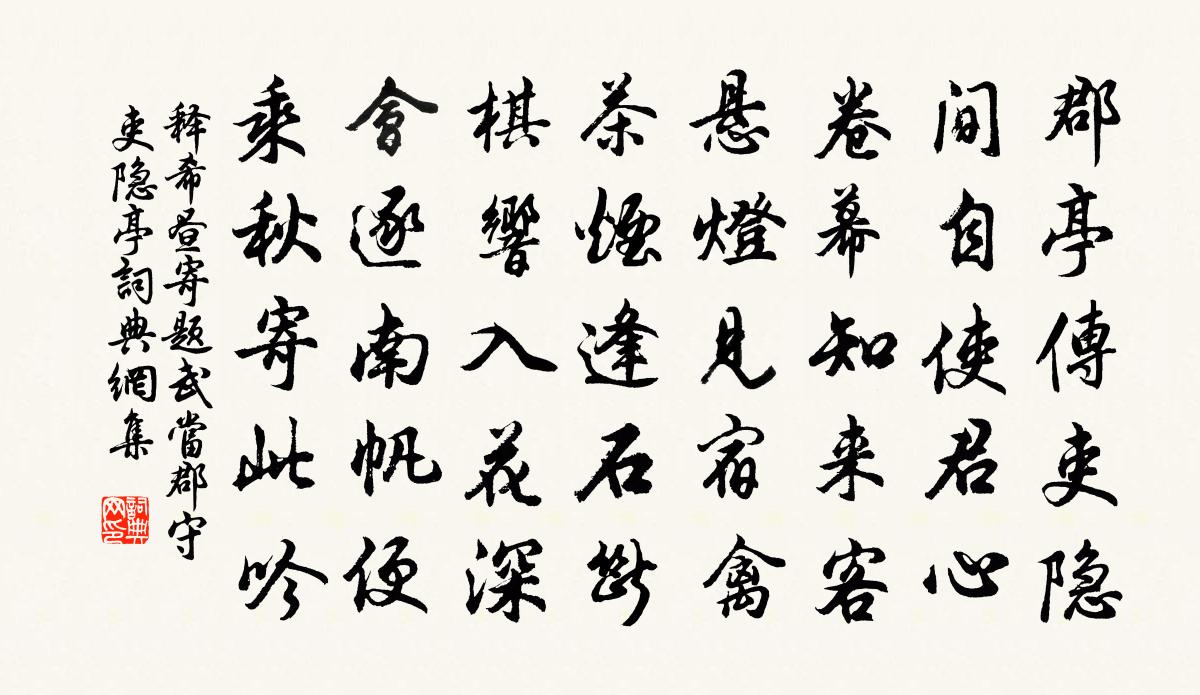 郡亭傳吏隐
间自使君心
卷幕知来客
悬燈見宿禽
茶煙逢石斷
棋響入花深
會逐南帆便
乘秋寄此吟
释希昼寄题武當郡守
吏隐亭詞典網集
詞典网印